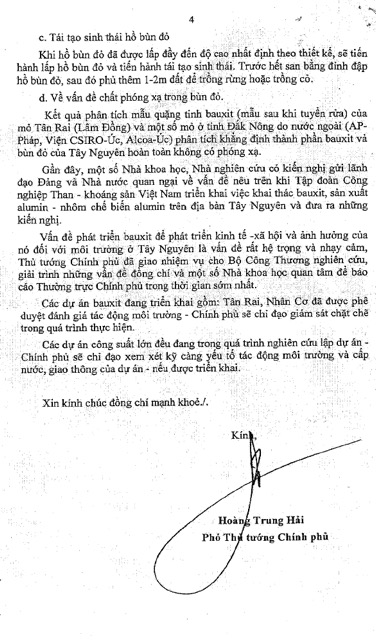 4
c. Tái tạo sinh thái hồ bùn đỏ
Khi hồ bùn đỏ đã được lấp đầy đến độ cao nhất định theo thiết kế, sẽ tiến
hành lấp hồ bùn đỏ và tiến hành tái tạo sinh thái. Trước hết san bằng đỉnh đập
hồ bùn đỏ, sau đó phủ thêm 1-2m đất để trồng rừng hoặc trồng cỏ.
d. Về vấn đề chất phóng xạ trong bùn đỏ.
Kết quả phân tích mẫu quặng tinh bauxit (mẫu sau khi tuyển rửa) của
mỏ Tân Rai (Lâm Đồng) và một số mỏ ở tỉnh Đắk Nông do nước ngoài (AP-
Pháp, Viện CSIRO-Úc, Alcoa-Úc) phân tích khẳng định thành phần bauxit và
bùn đỏ của Tây Nguyên hoàn toàn không có phóng xạ.
Gần đây, một số Nhà khoa học, Nhà nghiên cứu có kiến nghị gửi lãnh
đạo Đảng và Nhà nước quan ngại về vấn đề nêu trên khi Tập đoàn Công
nghiệp Than - khoáng sản Việt Nam triển khai việc khai thác bauxit, sản xuất
alumin - nhôm chế biến alumin trên địa bàn Tây Nguyên và đưa ra những
kiến nghị.
Vấn đề phát triển bauxit để phát triển kinh tế -xã hội và ảnh hưởng của
nó đối với môi trường ở Tây Nguyên là vấn đề rất hệ trọng và nhạy cảm,
Thủ tướng Chính phủ đã giao nhiệm vụ cho Bộ Công Thương nghiên cứu,
giải trình những vấn đề đồng chí và một số Nhà khoa học quan tâm để báo
cáo Thường trực Chính phủ trong thời gian sớm nhất.
Các dự án bauxit đang triển khai gồm: Tân Rai, Nhân Cơ đã được phê
duyệt đánh giá tác động môi trường - Chính phủ sẽ chỉ đạo giám sát chặt chẽ
trong quá trình thực hiện.
Các dự án công suất lớn đều đang trong quá trình nghiên cứu lập dự án -
Chính phủ sẽ chỉ đạo xem xét kỹ càng yếu tố tác động môi trường và cấp
nước, giao thông của dự án - nếu được triển khai.
Xin kính chúc đồng chí mạnh khoẻ./.
Kính,
Hoàng Trung Hải
Phó Thủ tướng Chính phủ